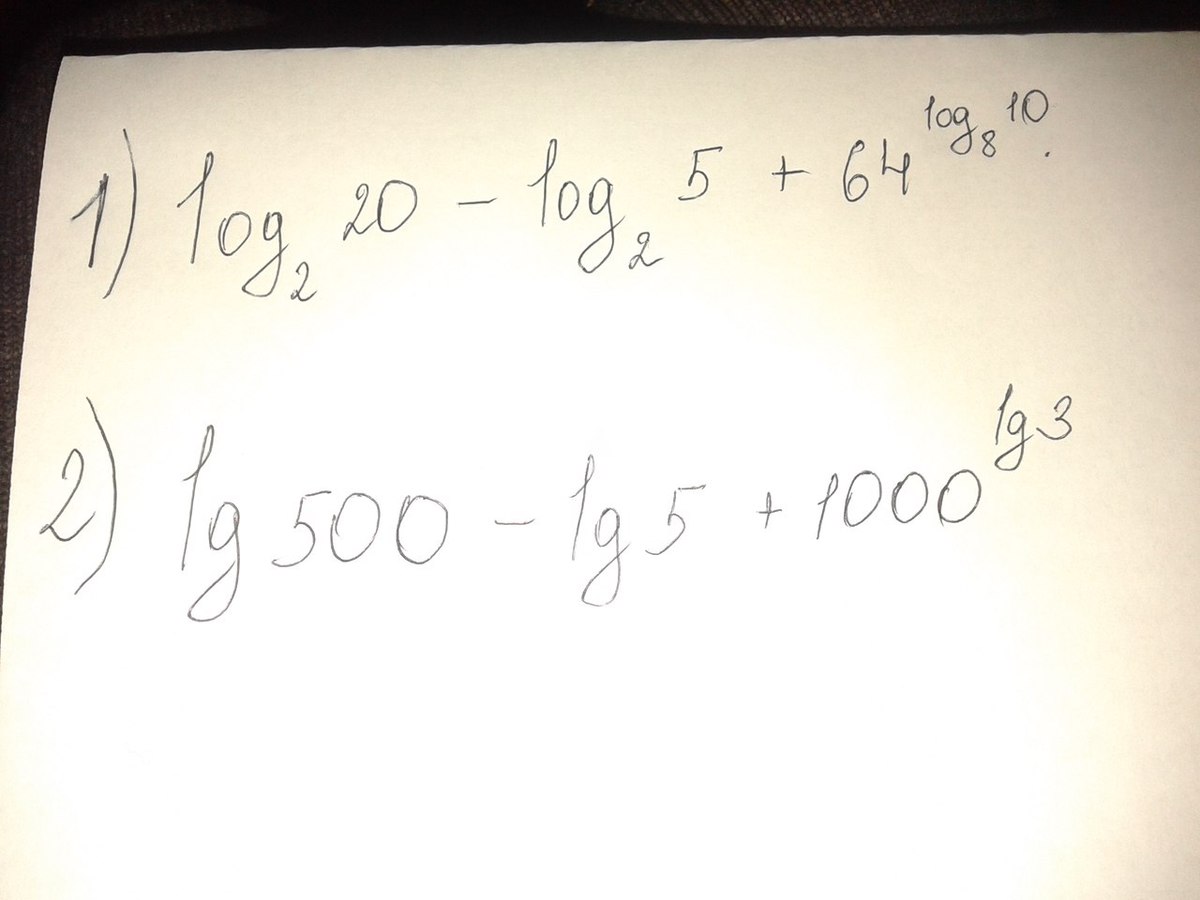 1) log₂ 20 − log₂ 5 + 64^(log₈ 10).
2) lg 500 − lg 5 + 1000^(lg 3)